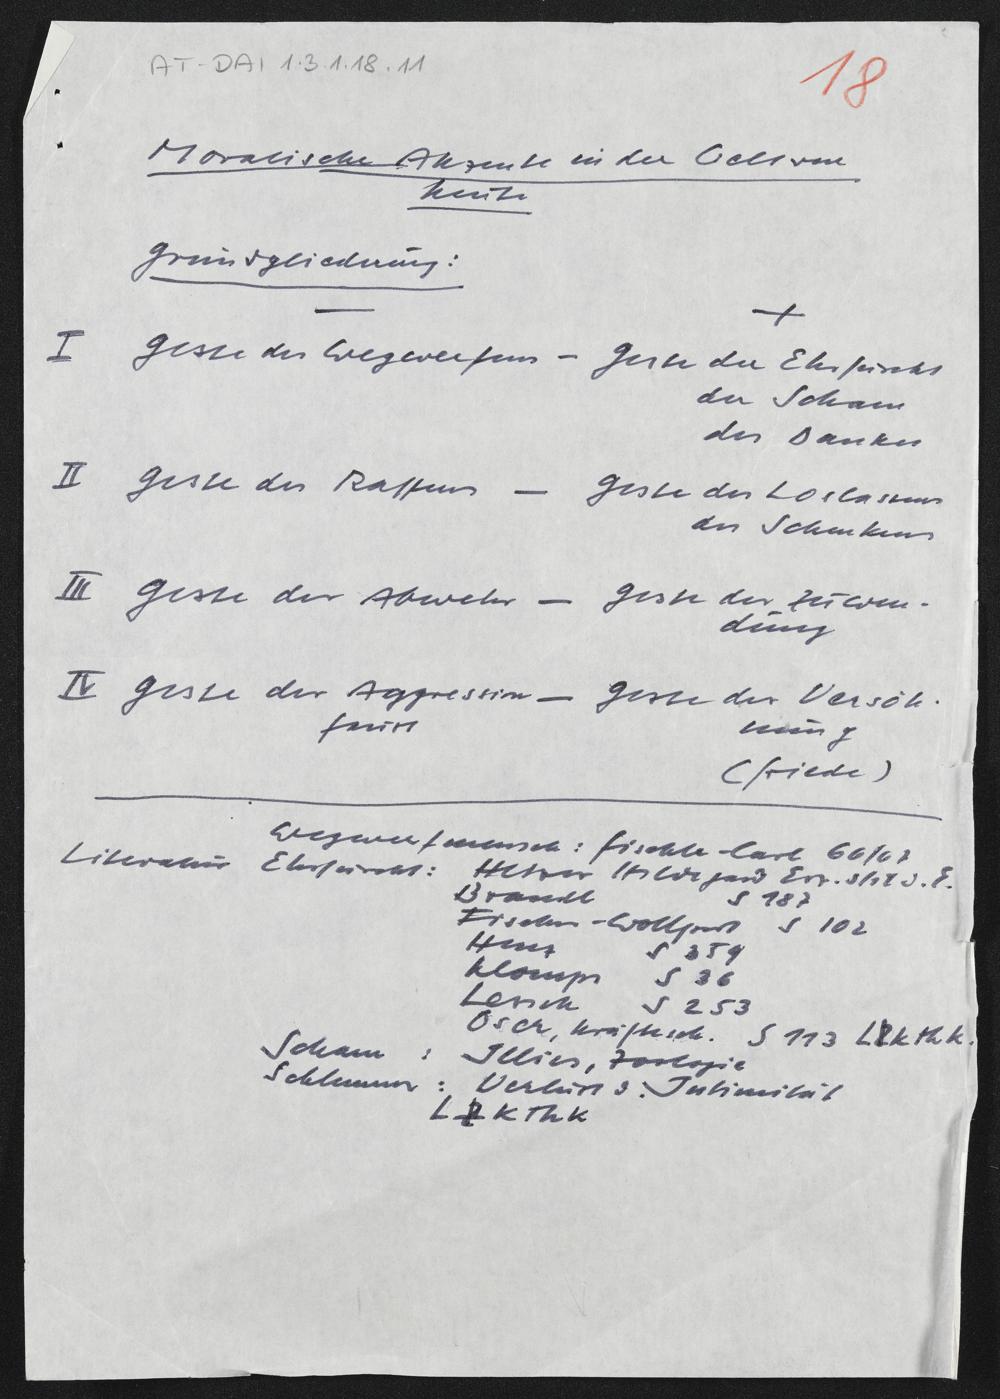 AT-DAI 1.3.1.18.11
18
Moralische Akzente in der Welt von
heute
Grundgliederung:
— +
I Geste des Wegwerfens – Geste der Ehrfurcht
der Scham
des Dankes
II Geste des Raffens – Geste des Loslassens
des Schenkens
III Geste der Abwehr – Geste der Zuwen-
dung
IV Geste der Aggression – Geste der Versöh-
Faust nung
(Friede)
Wegwerfmensch: Fischle-Carl 66/67
Literatur Ehrfurcht: Hetzer Hildegard
Brandl S 187
Fischer-Wollpert S 102
Henz S 359
Klomps S 36
Lersch S 253
S 113 LZKThK.
Scham : Illies, Zoologie
: Intimität
LZKThK